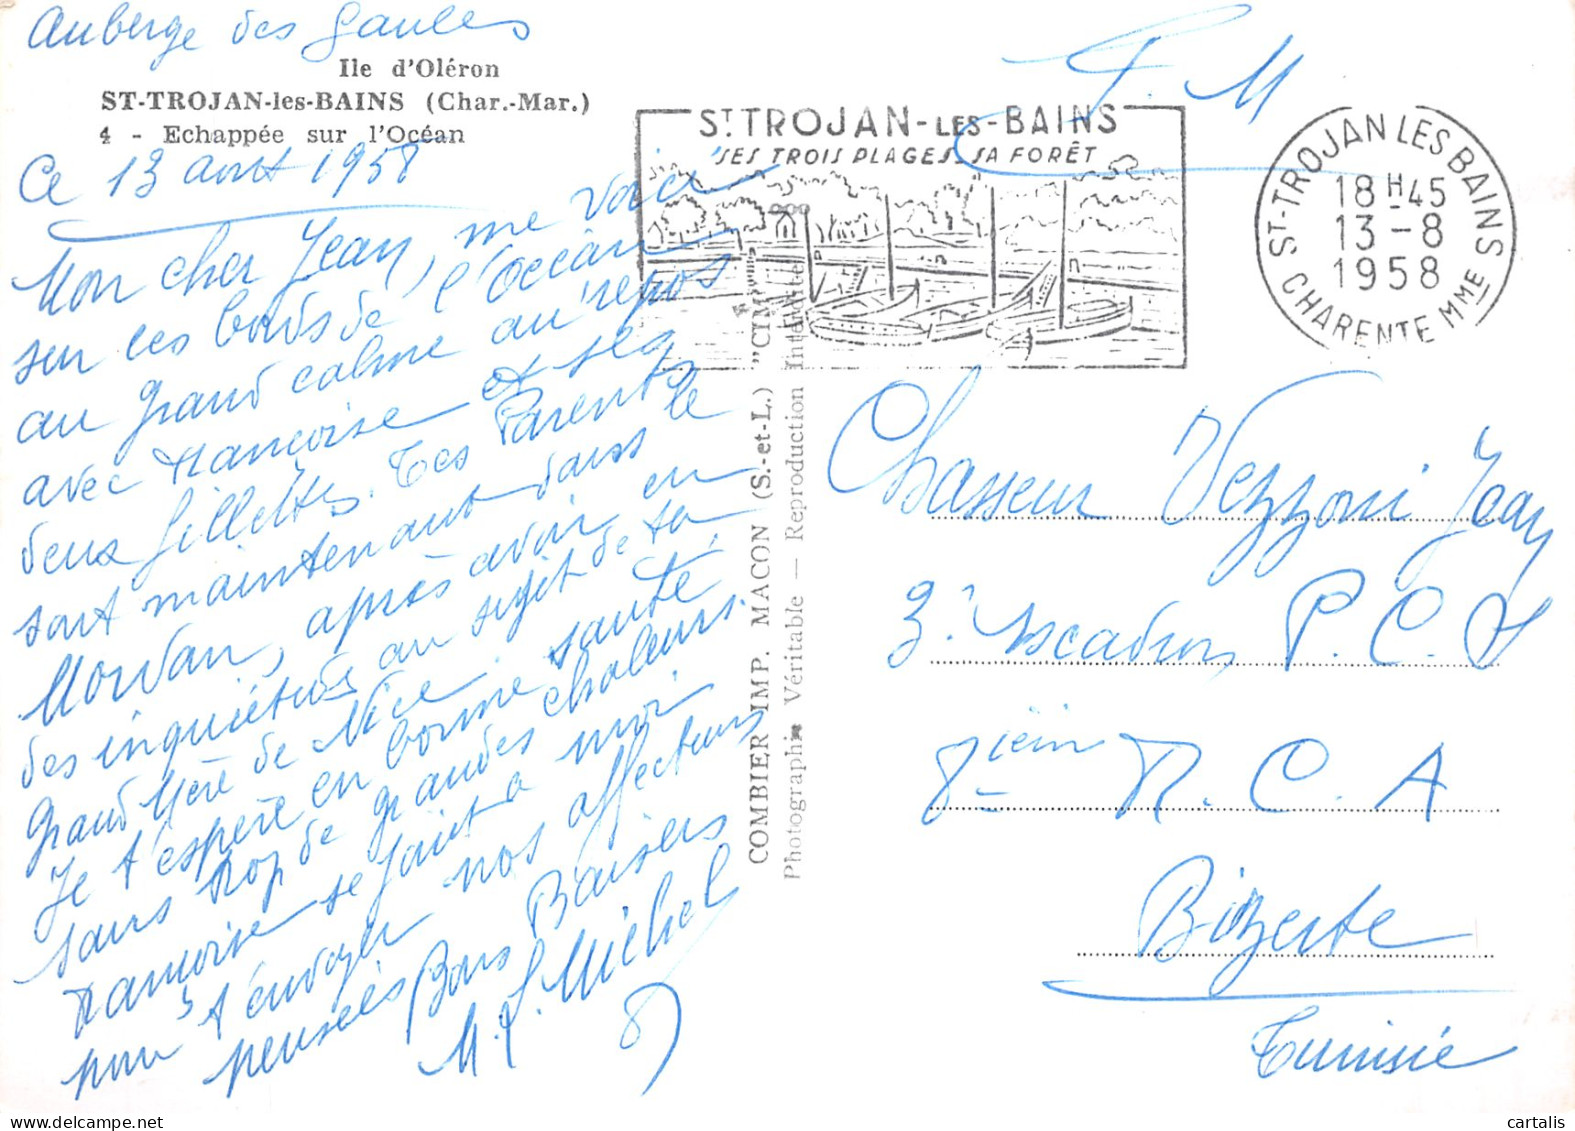 Auberge des Gaules
Ile d'Oléron
ST-TROJAN-les-BAINS (Char.-Mar.)
4 - Echappée sur l'Océan
Ce 13 août 1958
Mon cher Jean, me voici
sur les bords de l'Océan
au grand calme au repos
avec Françoise et ses
deux fillettes. Tes Parents
sont maintenant dans le
Morvan, après avoir eu
des inquiétudes au sujet de ta
Grand Mère de Nice.
Je t'espère en bonne santé
sans trop de grandes chaleurs.
Françoise se joint à moi
pour t'envoyer nos affectueuses
pensées Bons Baisers
M. L. Michel
COMBIER IMP. MACON (S.-et-L.) "CIM"
Photographie Véritable — Reproduction Interdite
F. M
ST TROJAN-LES-BAINS
SES TROIS PLAGES SA FORÊT
ST-TROJAN LES BAINS
18H45
13-8
1958
CHARENTE MME
Chasseur Vezzoni Jean
3e Escadron P. C. S
8ième R. C. A
Bizerte
Tunisie
cartalis